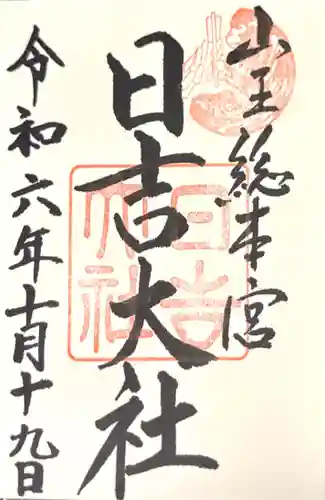 山王総本宮
日吉大社
令和六年十月十九日
日吉
大社